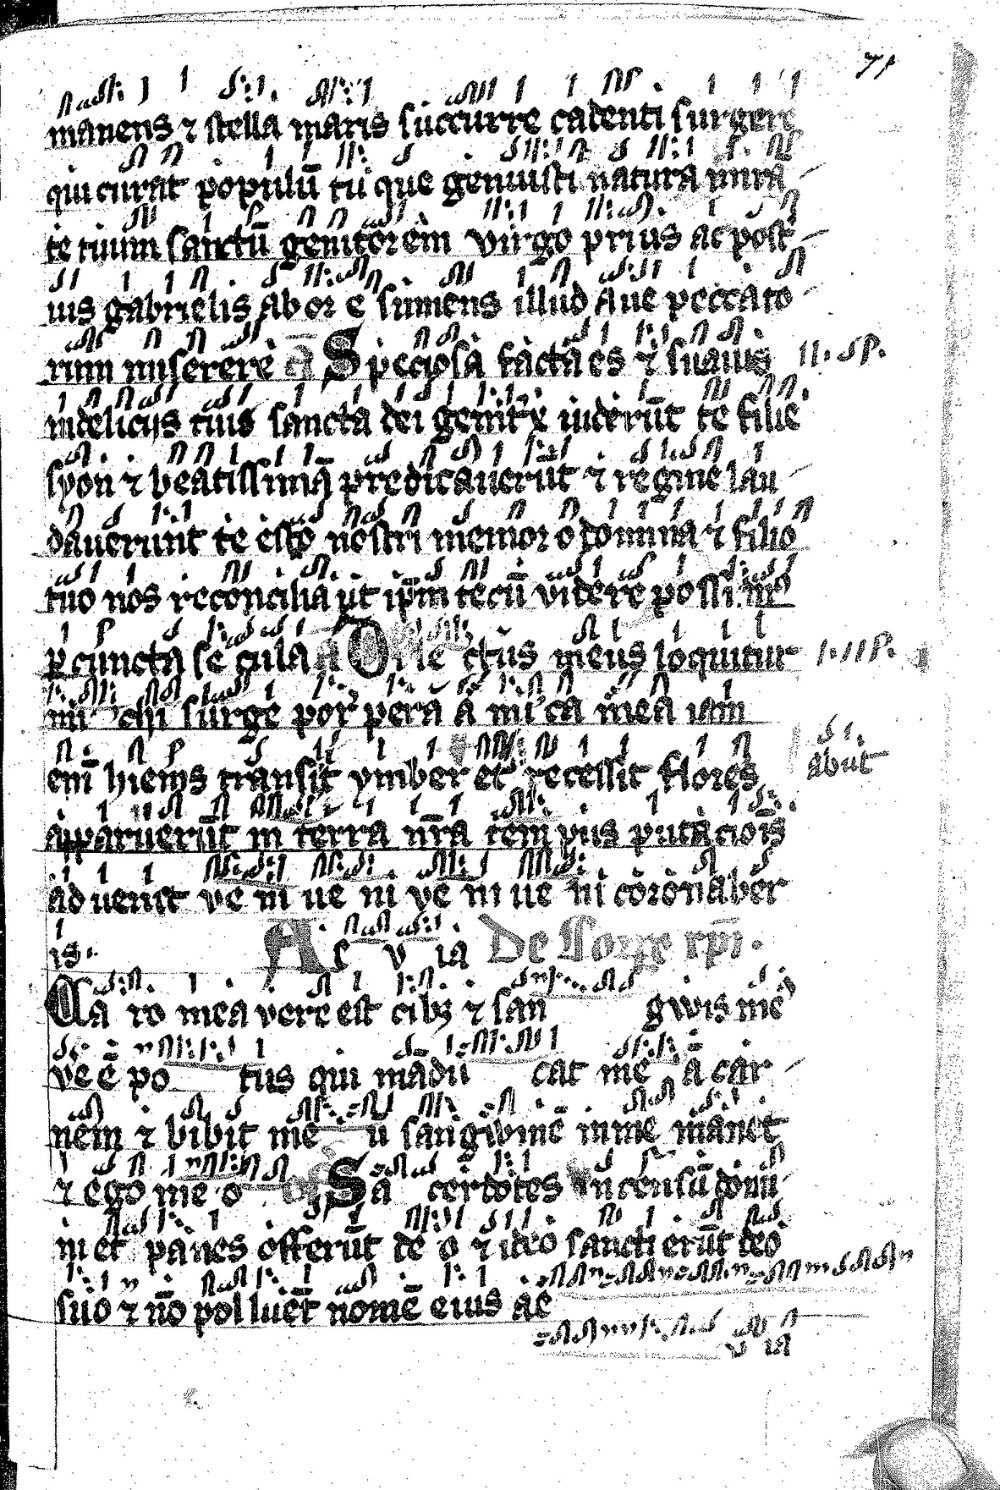 71
manens ⁊ stella maris succurre cadenti surgere
qui curat populū tu que genuisti natura mira
te tuum sanctū genitorem virgo prius ac post
ius gabrielis ab or e sumens illud aue peccato
rum miserere a Speciosa facta es ⁊ suauis
indeliciis tuis sancta dei genitx uiderūt te filie
syon ⁊ beatissimā predicauerūt ⁊ regine lau
dauerunt te esto nostri memor o domina ⁊ filio
tuo nos reconcilia ut ip̄m tecū videre possim
p cuncta se cula a Dile ctus meus loquitur
mi chi surge pop̄ pera a mi ca mea iam
em̄ hiems transiit ymber et recessit flores abiit
apparuerūt in terra nr̄a tem pus putacois
ad uenit ve ni ue ni ve ni ue ni coronaber
is. A e v ia De Corpe xp̄i.
Ca ro mea vere est cibꝫ ⁊ san gwis meꝰ
ve ē po tus qui mādu cat mē ā car
nem ⁊ bibit me u sangwinē inme manet
⁊ ego me o of Sa cerdotes incensū domi
ni et panes offerūt de o ⁊ ideo sancti erūt deo
suo ⁊ nō polluēt nomē eius ae
v ia